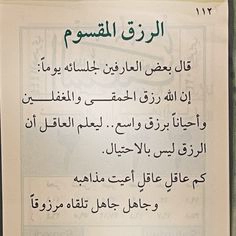 ١١٢
الرزق المقسوم
قال بعض العارفين لجلسائه يوماً:
إن الله رزق الحمقـى والمغفلـين
وأحياناً برزق واسع.. ليعلم العاقـل أن
الرزق ليس بالاحتيال.
كم عاقلٍ عاقلٍ أعيت مذاهبه
وجاهل جاهل تلقاه مرزوقاً